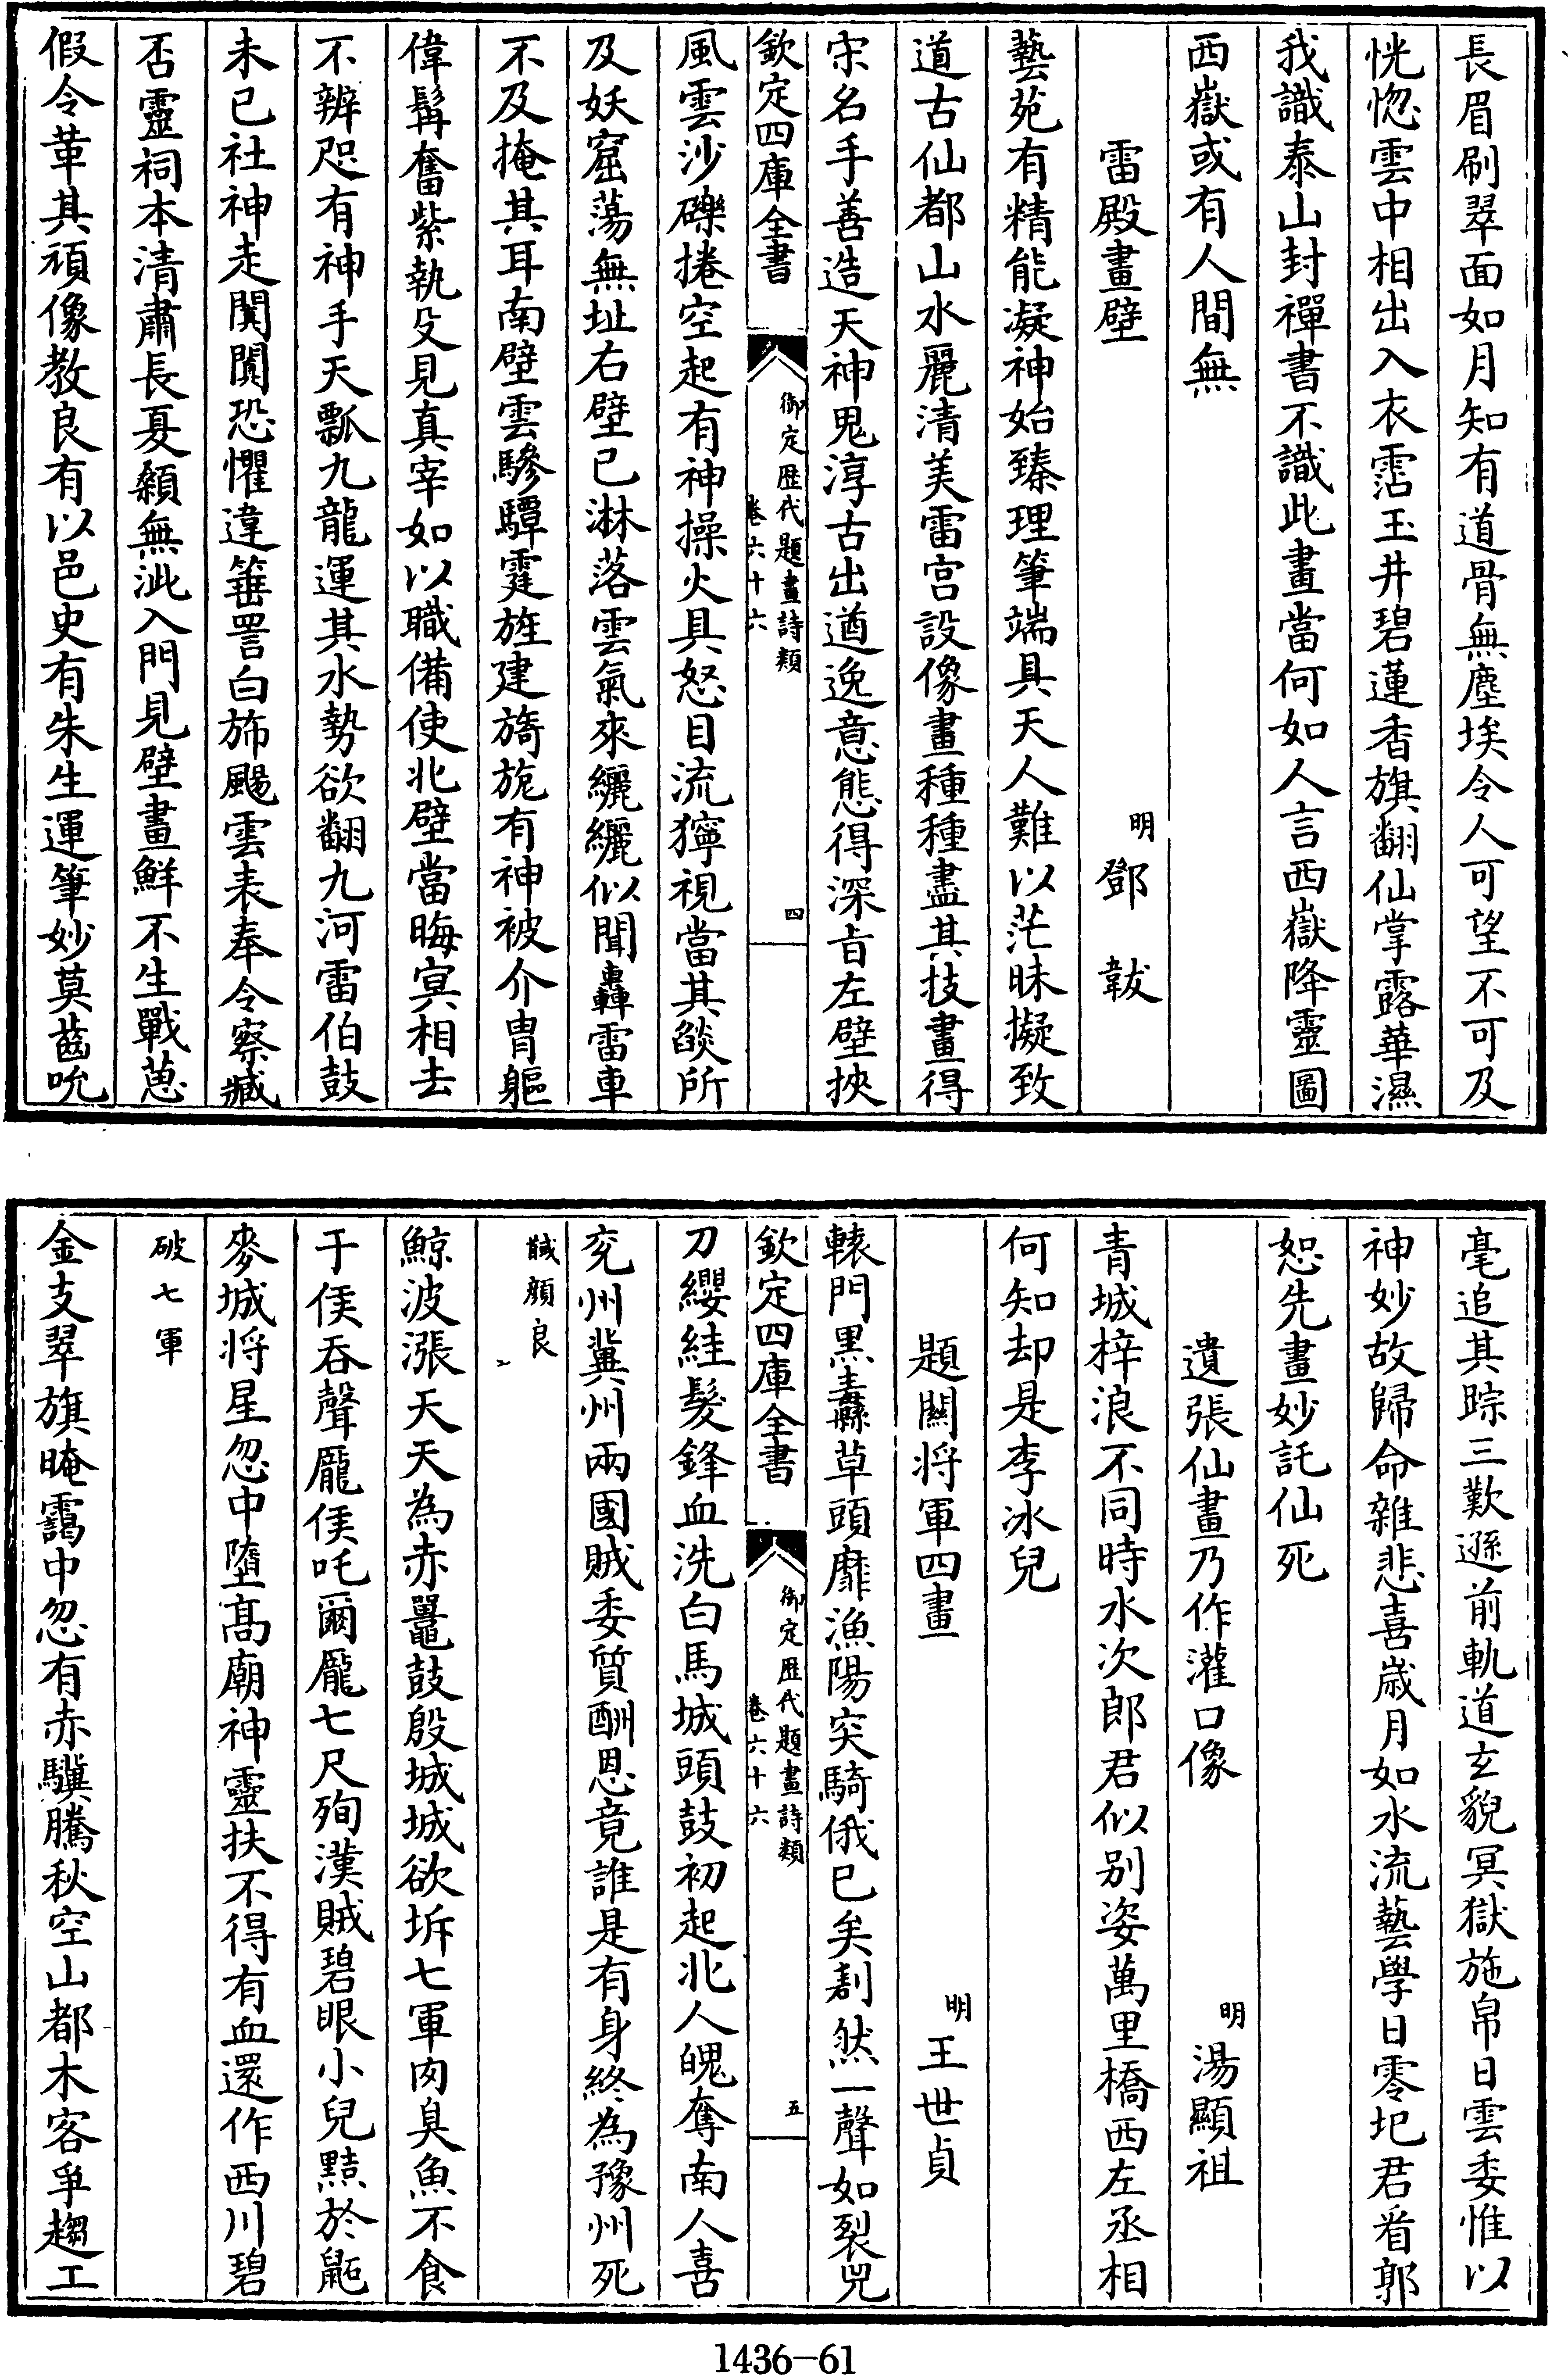 長眉刷翠面如月知有道骨無塵埃令人可望不可及
恍惚雲中相出入衣霑玉井碧蓮香旗翻仙掌露華濕
我識泰山封禪書不識此畫當何如人言西嶽降靈圖
西嶽或有人間無
雷殿畫壁 明 鄧韍
藝苑有精能凝神始臻理筆端具天人難以茫昧擬致
道古仙都山水麗清美雷宫設像畫種種盡其技畫得
宋名手善造天神鬼淳古出遒逸意態得深旨左壁挾
欽定四庫全書 御定歷代題畫詩類 卷六十六 四
風雲沙礫捲空起有神操火具怒目流獰視當其燄所
及妖窟蕩無址右壁已淋落雲氣來纚纚似聞轟雷車
不及掩其耳南壁雲驂驔霆旌建旖旎有神被介胄軀
偉髯奮紫執殳見真宰如以職備使北壁當晦冥相去
不辨咫有神手天瓢九龍運其水勢欲翻九河雷伯鼓
未已社神走闐闐恐懼違箠詈白斾颺雲表奉令察臧
否靈祠本清肅長夏顙無泚入門見壁畫鮮不生戰葸
假令革其頑像教良有以邑史有朱生運筆妙莫齒吮
毫追其踪三歎遜前軌道玄貌冥獄施帛日雲委惟以
神妙故歸命雜悲喜歲月如水流藝學日零圮君看郭
恕先畫妙託仙死
遺張仙畫乃作灌口像 明 湯顯祖
青城梓浪不同時水次郎君似别姿萬里橋西左丞相
何知却是李冰兒
題關将軍四畫 明 王世貞
轅門黑纛草頭靡漁陽突騎俄已矣劃然一聲如裂兕
欽定四庫全書 御定歷代題畫詩類 卷六十六 五
刀纓絓髮鋒血洗白馬城頭鼓初起北人魄奪南人喜
兖州冀州兩國賊委質酬恩竟誰是有身終為豫州死
馘顔良
鯨波漲天天為赤鼉鼓殷城城欲坼七軍肉臭魚不食
于侯吞聲龐侯吒爾龐七尺殉漢賊碧眼小兒黠於鼫
麥城将星忽中墮髙廟神靈扶不得有血還作西川碧
破七軍
金支翠旗晻靄中忽有赤驥騰秋空山都木客爭趨工
1436-61